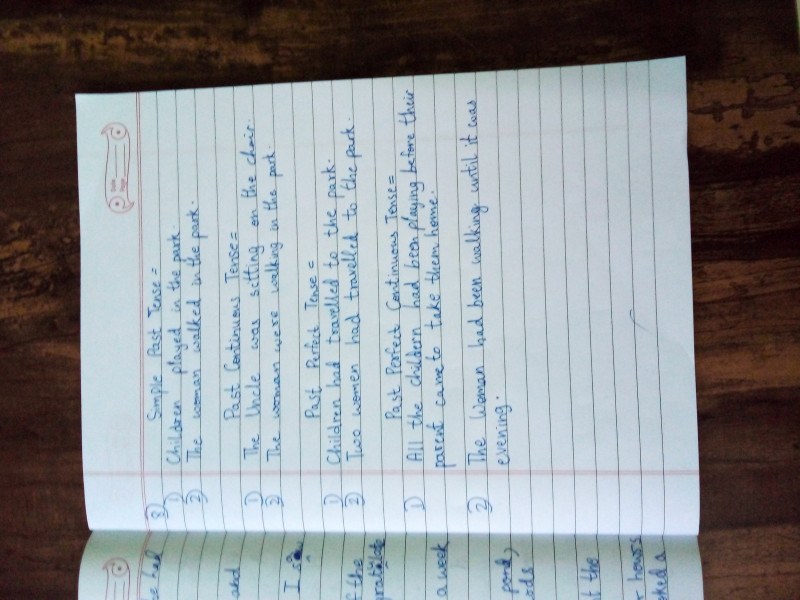 8) Simple Past Tense =
1) Children played in the park.
2) The woman walked in the park.
Past Continuous Tense =
1) The Uncle was sitting on the chair.
2) The woman were walking in the park.
Past Perfect Tense =
1) Children had travelled to the park.
2) Two women had travelled to the park.
Past Perfect Continuous Tense =
1) All the childern had been playing before their
parent came to take them home.
2) The Woman had been walking until it was
evening.
had
and
I
of the
a week
pond,
the
hours
a